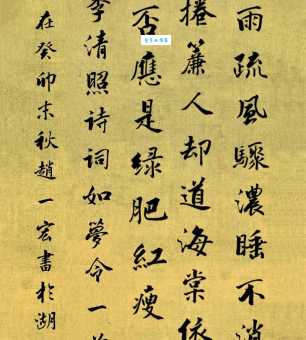 雨疏風驟濃睡不消
捲簾人却道海棠依
否應是绿肥紅瘦
李清照诗詞如夢令一
在癸卯末秋趙一宏書於湖